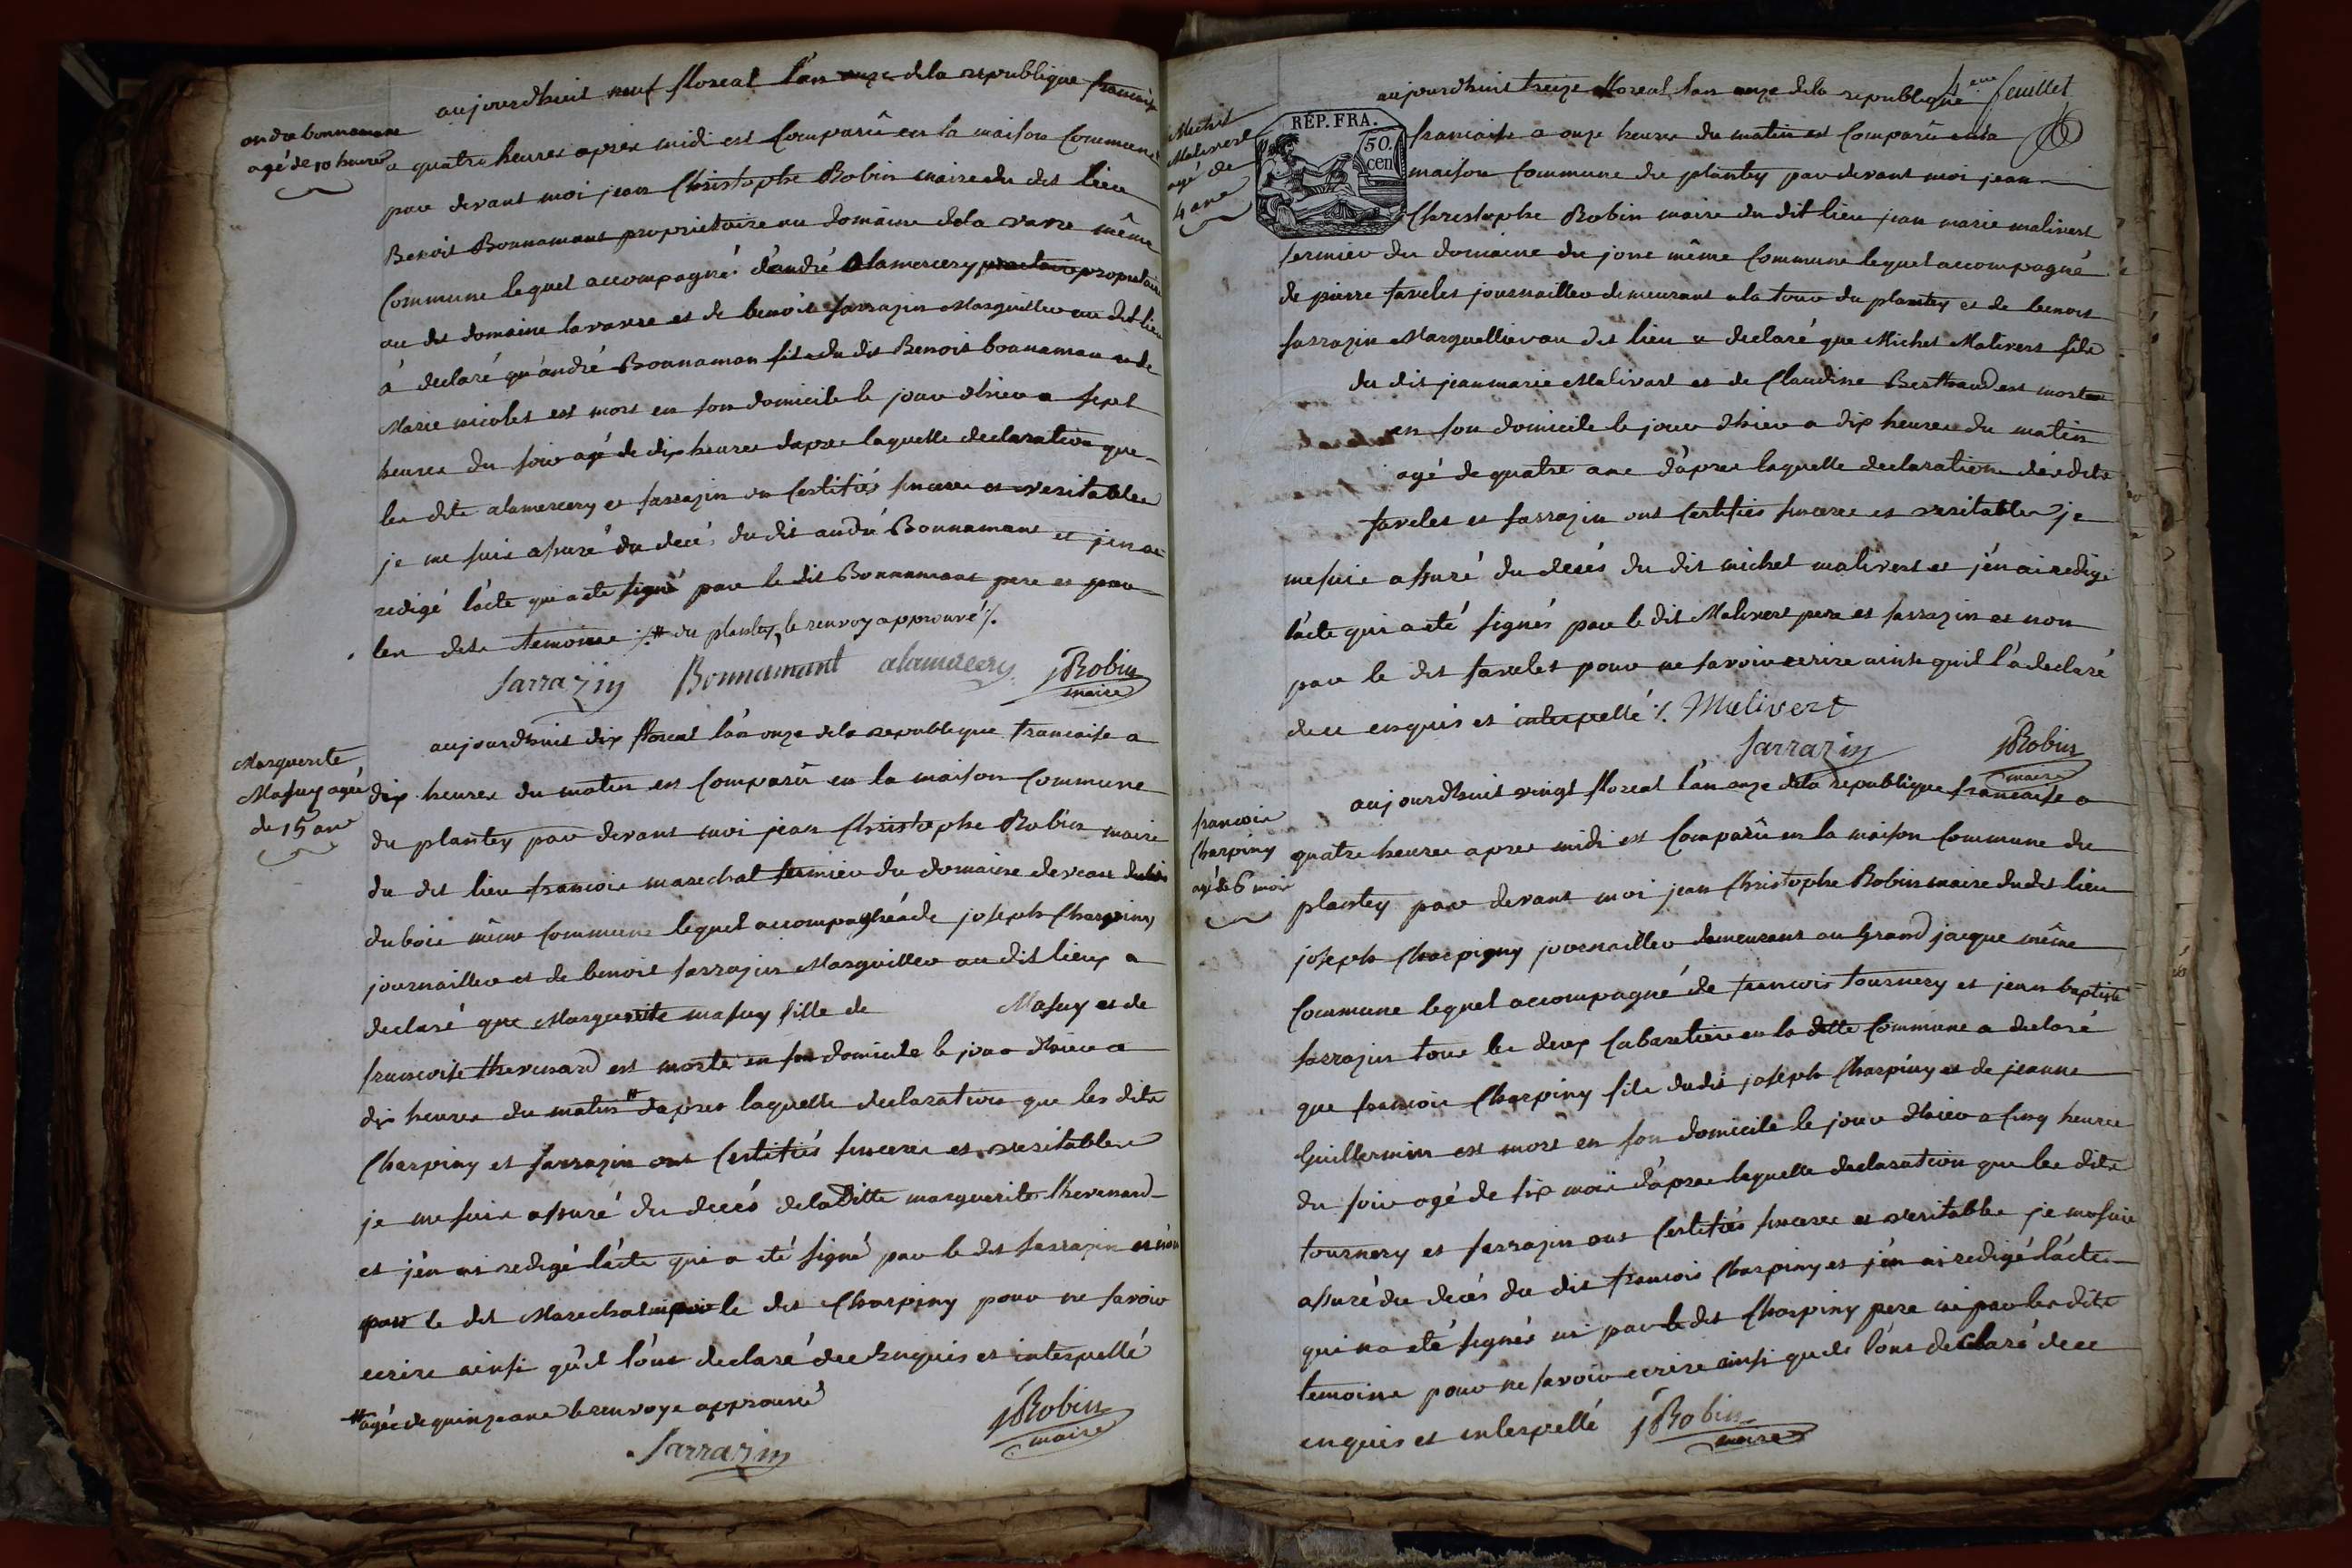 andré bonnamant
agé de 10 heures
aujourdhuit neuf floreal l'an onze dela republique francaise
a quatre heures apres midi est Comparû en la maison Commune
par devant moi jean Christophe Robin maire du dit lieu
Benoit Bonnamant proprietaire au domaine dela varre même
Commune lequel accompagné d'andré alamercery proprietaire
au dit domaine lavarre et de benoit sarrazin Marguillier au dit lieu
a declaré qu'andré Bonnaman fils du dit Benoit bonnaman et de
Marie nicolet est mort en son domicile le jour d'hier a sept
heures du soir agé de dix heures d'apres laquelle declaration que
les dits alamercery et sarrazin on Certifiés sinceres et veritables
je me suis assuré du decé du dit andré Bonnamant et j'en ai
redigé l'acte qui a été signé par le dit Bonnamant pere et par
les dits temoins ⁒ # du plantey, le renvoy approuvé ⁒
Sarrazin Bonnamant alamercery JRobin
maire
Marguerite
Masuy agée
de 15 ans
aujourdhuit dix floreal l'an onze dela republique francaise a
dix heures du matin est Comparû en la maison Commune
du plantey par devant moi jean Christophe Robin maire
du dit lieu francois marechal fermier du domaine
dubois même Commune lequel accompagné de joseph Charpiny
journaillier et de benoit sarrazin Marguillier au dit lieux a
declaré que Marguerite masuy fille de Masuy et de
francoise thevenard est morte en son domicile le jour d'hier a
dix heures du matin # d'apres laquelle declaration que les dits
Charpiny et sarrazin ont Certifiés sinceres et veritables
je me suis assuré du decés dela ditte marguerite thevenard
et j'en ai redigé l'acte qui a été signé par le dit sarrazin et non
par le dit Marechal ni par le dit Charpiny pour ne savoir
ecrire ainsi qu'il l'ont declaré de ce Enquis et interpellé
# agée de quinze ans le renvoye approuvé
Sarrazin
JRobin
maire
4eme feuillet
Michel
Malivert
agé de
4 ans
REP. FRA.
50.
cen
aujourdhuit treize floreal l'an onze dela republique
francaise a onze heures du matin est Comparû en la
maison Commune du plantey par devant moi jean
Christophe Robin maire du dit lieu jean marie malivert
fermier du domaine du jone même Commune lequel accompagné
de pierre favelet journaillier demeurant a la tour du plantey et de benoit
sarrazin Marguillier au dit lieu a declaré que Michel Malivert fils
du dit jean marie Malivert et de Claudine Berthaud est mort
en son domicile le jour d'hier a dix heures du matin
agé de quatre ans d'apres laquelle declaration les dits
favelet et sarrazin ont Certifiés sinceres et veritables je
me suis assuré du decés du dit michel malivert et j'en ai redigé
l'acte qui a été signés par le dit Malivert pere et sarrazin et non
par le dit favelet pour ne savoir ecrire ainsi qu'il l'a declaré
de ce enquis et interpellé ⁒ Malivert
Sarrazin
JRobin
maire
francois
Charpiny
agé de 6 mois
aujourdhuit vingt floreal l'an onze dela republique francaise a
quatre heures apres midi est Comparû en la maison Commune du
plantey par devant moi jean Christophe Robin maire du dit lieu
joseph Charpigny journaillier demeurant au Grand jacque même
Commune lequel accompagné de francois tournery et jean baptiste
sarrazin tous les deux Cabaretiers en la ditte Commune a declaré
que francois Charpiny fils du dit joseph Charpiny et de jeanne
Guillermin est mort en son domicile le jour d'hier a cinq heures
du soir agé de six mois d'apres laquelle declaration que les dits
tournery et sarrazin ont Certifiés sinceres et veritables je me suis
assuré du decés du dit francois Charpiny et j'en ai redigé l'acte
qui na été signés ni par le dit Charpiny pere ni par les dits
temoins pour ne savoir ecrire ainsi quils l'ont declaré de ce
enquis et interpellé JRobin
maire